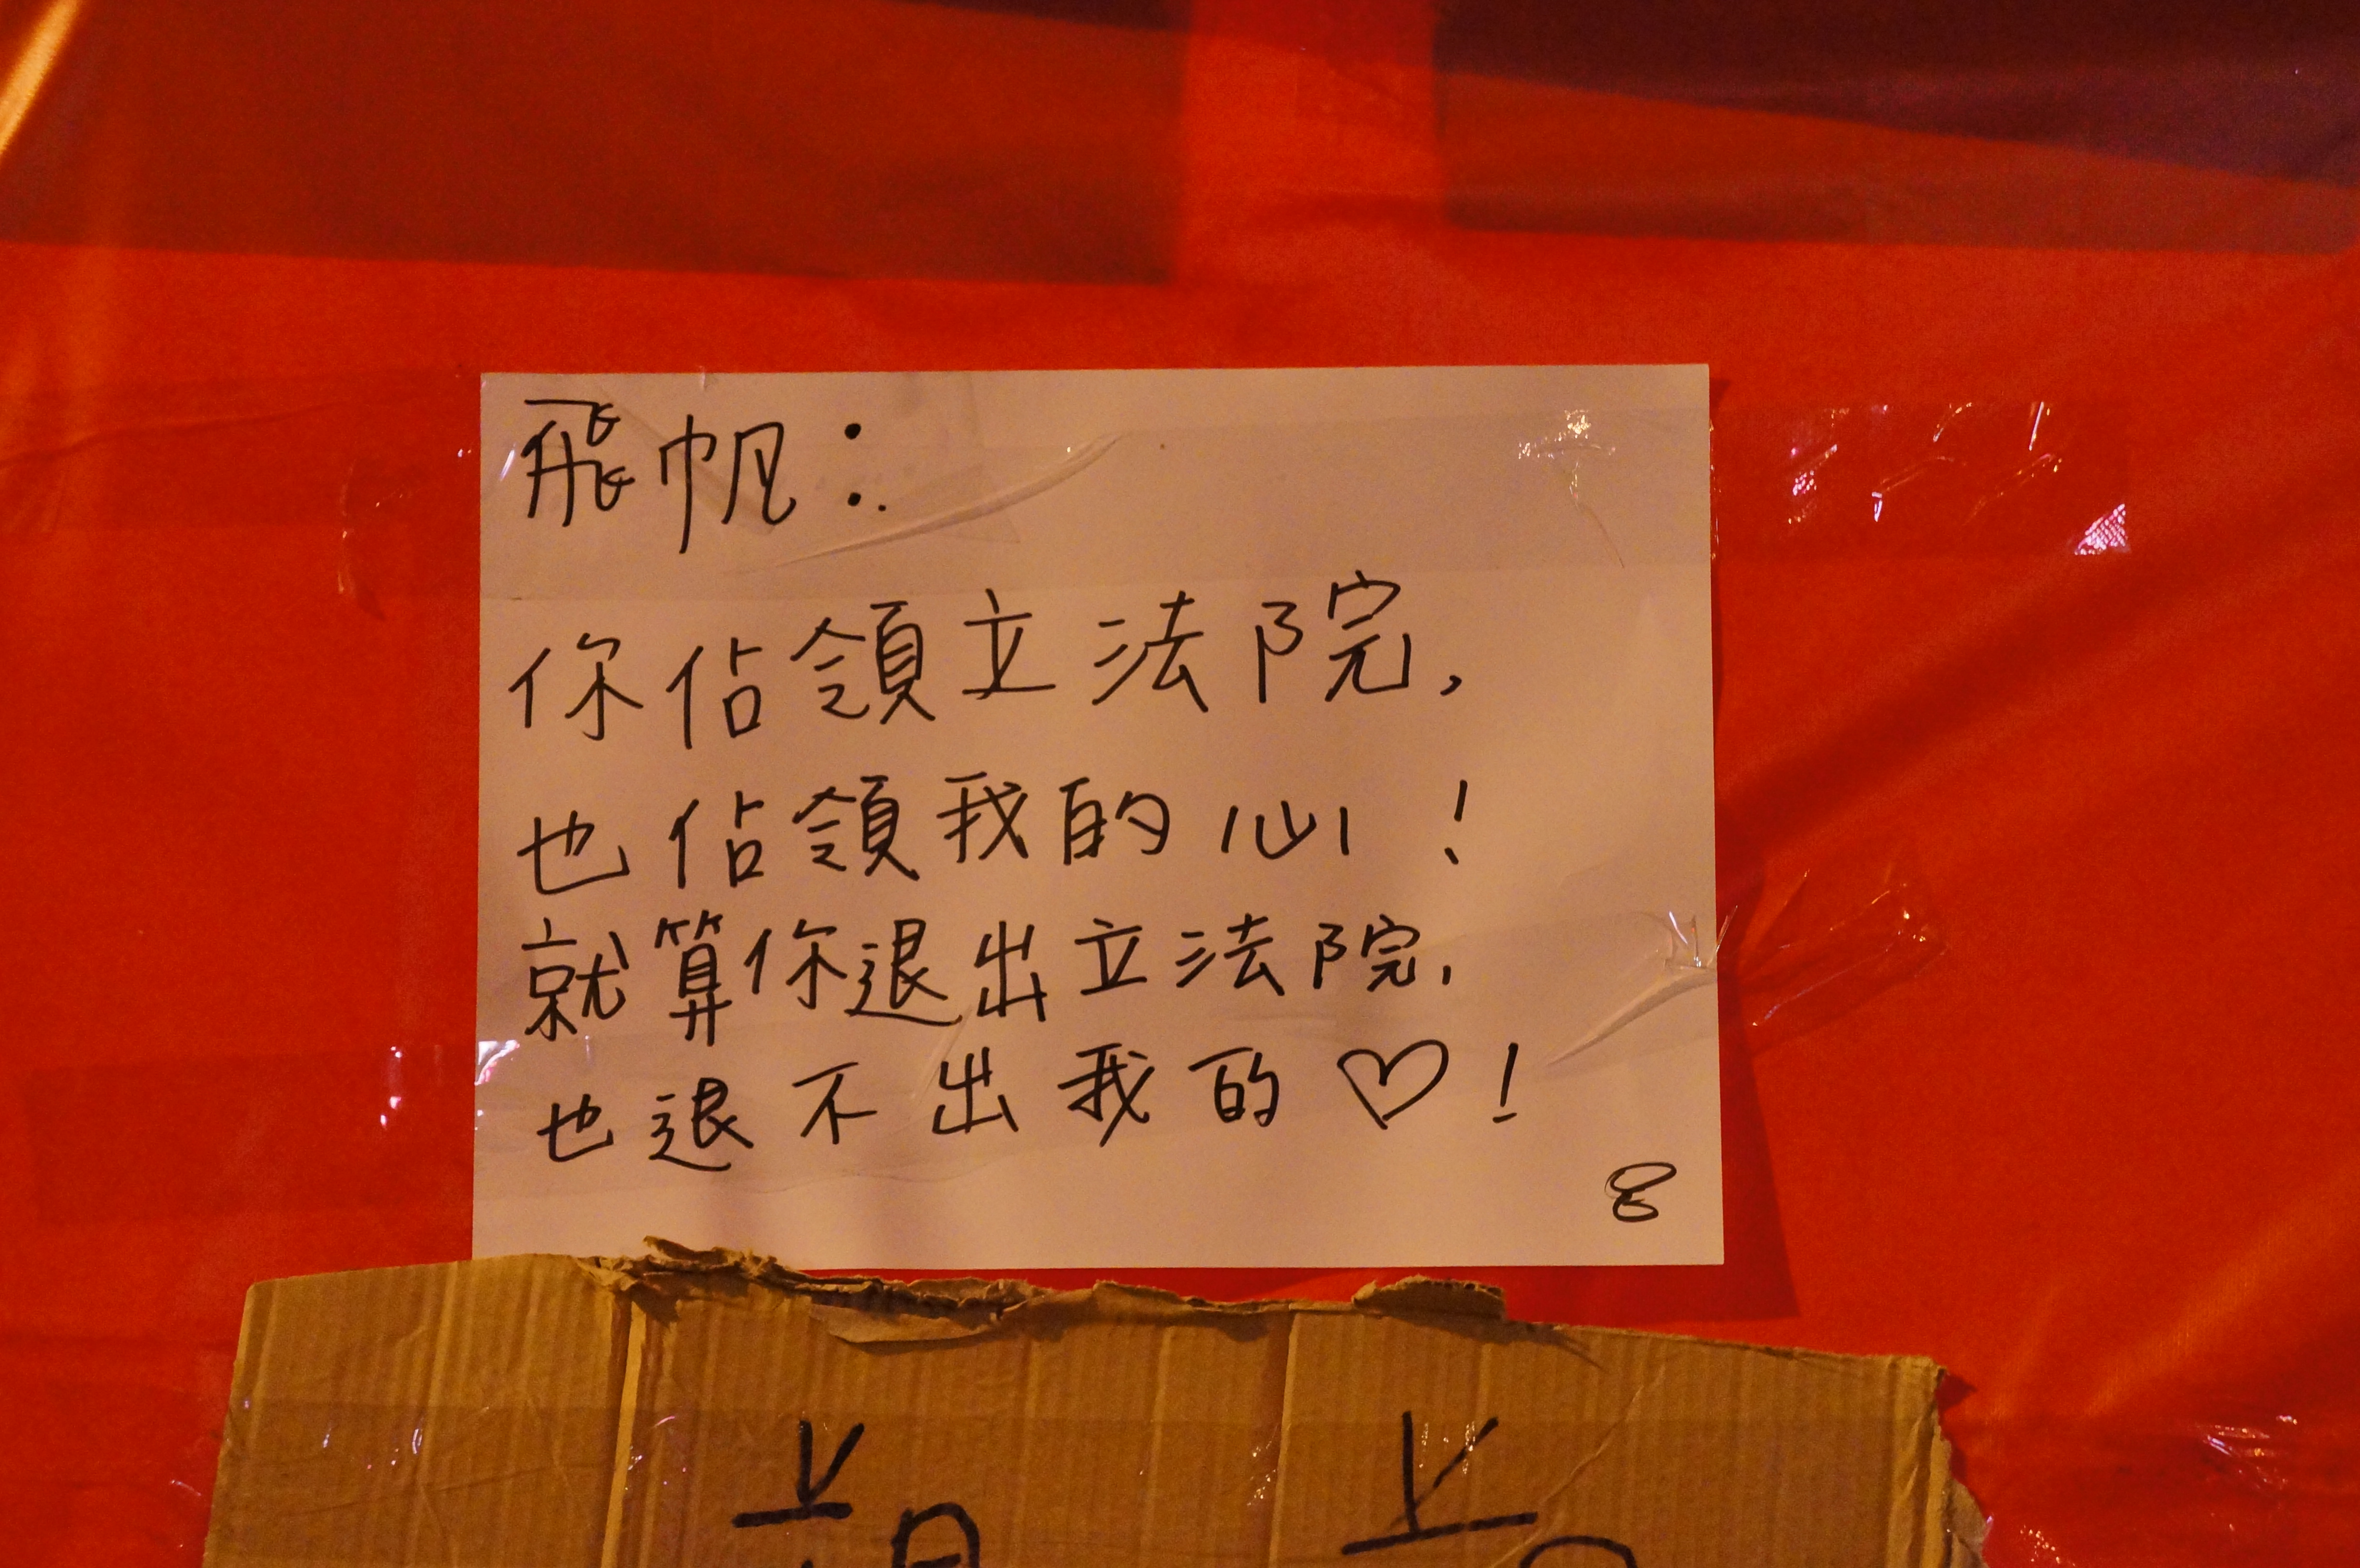 飛帆：
你佔領立法院，
也佔領我的心！
就算你退出立法院，
也退不出我的♡！